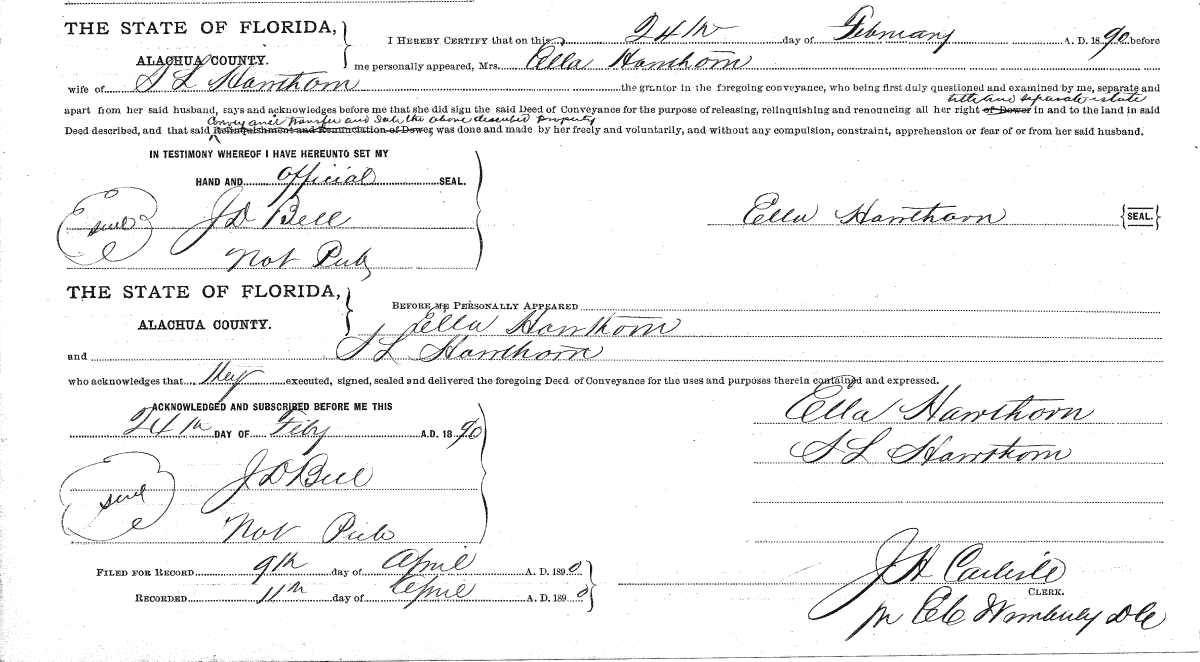 THE STATE OF FLORIDA,
ALACHUA COUNTY.
I HEREBY CERTIFY that on this 24th day of February A. D. 1890 before
me personally appeared, Mrs. Ella Hawthorn
wife of S L Hawthorn the grantor in the foregoing conveyance, who being first duly questioned and examined by me, separate and
title and separate estate
apart from her said husband, says and acknowledges before me that she did sign the said Deed of Conveyance for the purpose of releasing, relinquishing and renouncing all her right of Dower in and to the land in said
Conveyance transfer and Sale the above described property
Deed described, and that said Relinquishment and Renunciation of Dower, was done and made by her freely and voluntarily, and without any compulsion, constraint, apprehension or fear of or from her said husband.
IN TESTIMONY WHEREOF I HAVE HEREUNTO SET MY
HAND AND official SEAL.
seal J D Bell
Ella Hawthorn {SEAL.}
Not Pub
THE STATE OF FLORIDA,
ALACHUA COUNTY.
BEFORE ME PERSONALLY APPEARED
Ella Hawthorn
and S L Hawthorn
who acknowledges that they executed, signed, sealed and delivered the foregoing Deed of Conveyance for the uses and purposes therein contained and expressed.
ACKNOWLEDGED AND SUBSCRIBED BEFORE ME THIS
24th DAY OF Feby A.D. 1890
Ella Hawthorn
S L Hawthorn
seal J D Bell
Not Pub
FILED FOR RECORD 9th day of April A. D. 1890
RECORDED 11th day of April A. D. 1890
J H Carlisle
CLERK.
Wimberly D C